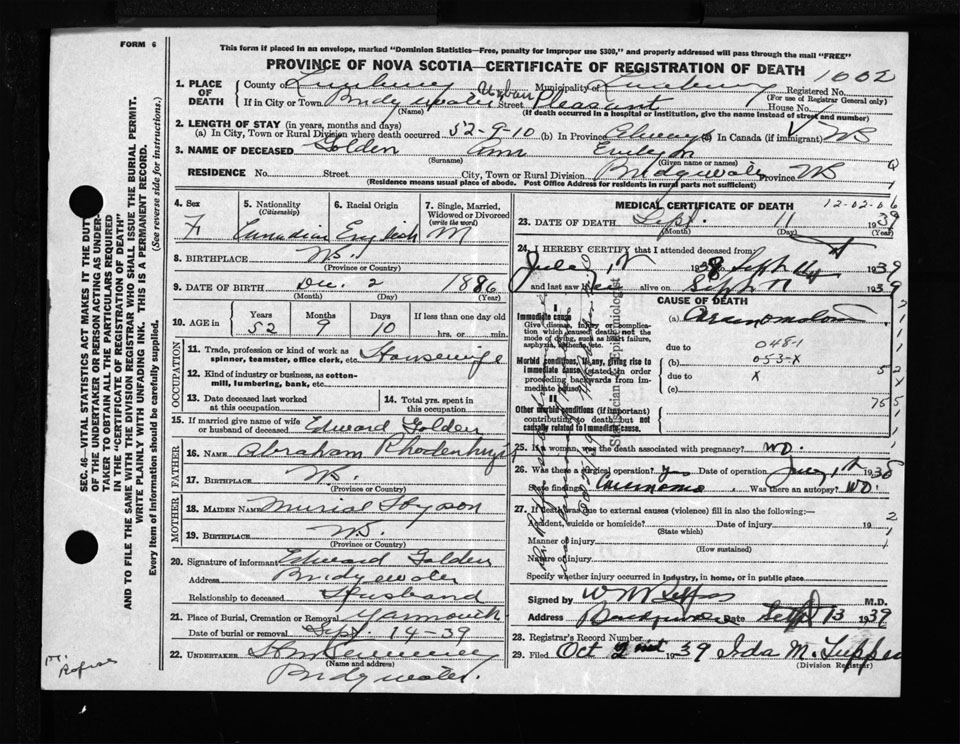 FORM 6
This form if placed in an envelope, marked "Dominion Statistics—Free, penalty for improper use $300," and properly addressed will pass through the mail "FREE"
PROVINCE OF NOVA SCOTIA—CERTIFICATE OF REGISTRATION OF DEATH 1002
1. PLACE OF DEATH County of Lunenburg Municipality of Lunenburg Registered No.
(For use of Registrar General only)
If in City or Town Bridgewater Urban Street Pleasant House No.
(Name) (If death occurred in a hospital or institution, give the name instead of street and number)
2. LENGTH OF STAY (in years, months and days)
(a) In City, Town or Rural Division where death occurred 52-9-10 (b) In Province Always (c) In Canada (if immigrant) NS
3. NAME OF DECEASED Golden Ann Evelyn
(Surname) (Given name or names)
RESIDENCE No. Street City, Town or Rural Division Bridgewater Province NS
(Residence means usual place of abode. Post Office Address for residents in rural parts not sufficient)
4. Sex F
5. Nationality (Citizenship) Canadian
6. Racial Origin English
7. Single, Married, Widowed or Divorced (write the word) M
8. BIRTHPLACE N.S.
(Province or Country)
9. DATE OF BIRTH Dec. 2 1886
(Month) (Day) (Year)
10. AGE in Years 52 Months 9 Days 10 If less than one day old
hrs. or min.
OCCUPATION
11. Trade, profession or kind of work as spinner, teamster, office clerk, etc. Housewife
12. Kind of industry or business, as cotton-mill, lumbering, bank, etc.
13. Date deceased last worked at this occupation
14. Total yrs. spent in this occupation
15. If married give name of wife or husband of deceased Edward Golden
FATHER
16. Name Abraham Rhodenhyser
17. BIRTHPLACE N.S.
(Province or Country)
MOTHER
18. MAIDEN NAME
19. BIRTHPLACE N.S.
(Province or Country)
20. Signature of informant Edward Golden
Address Bridgewater
Relationship to deceased Husband
21. Place of Burial, Cremation or Removal Yarmouth
Date of burial or removal Sept. 14-39
22. UNDERTAKER
(Name and address)
Bridgewater.
MEDICAL CERTIFICATE OF DEATH
12-02-06
23. DATE OF DEATH Sept. 11 1939
(Month) (Day) (Year)
24. I HEREBY CERTIFY that I attended deceased from
1938 Sept 11 1939
and last saw her alive on Sept 11 1939
CAUSE OF DEATH
I
Immediate cause
Give disease, injury or complication which caused death, not the mode of dying, such as heart failure, asphyxia, asthenia, etc.
(a)
due to 048-1
Morbid conditions, if any, giving rise to immediate cause (stated in order proceeding backwards from immediate cause).
(b) 053-X
due to X
(c)
II
Other morbid conditions (if important) contributing to death but not causally related to immediate cause.
25. If a woman, was the death associated with pregnancy? NO.
26. Was there a surgical operation? yes Date of operation 1938
State findings Carcinoma Was there an autopsy? NO.
27. If death was due to external causes (violence) fill in also the following:—
Accident, suicide or homicide? Date of injury 19
(State which)
Manner of injury
(How sustained)
Nature of injury
Specify whether injury occurred in industry, in home, or in public place
Signed by M.D.
Address Bridgewater Date Sept 13 1939
28. Registrar's Record Number
29. Filed Oct 2nd 1939 Ida M. Tupper
(Division Registrar)
SEC. 46—VITAL STATISTICS ACT MAKES IT THE DUTY OF THE UNDERTAKER OR PERSON ACTING AS UNDERTAKER TO OBTAIN ALL THE PARTICULARS REQUIRED IN THE "CERTIFICATE OF REGISTRATION OF DEATH"
AND TO FILE THE SAME WITH THE DIVISION REGISTRAR WHO SHALL ISSUE THE BURIAL PERMIT.
(See reverse side for instructions.)
WRITE PLAINLY WITH UNFADING INK. THIS IS A PERMANENT RECORD.
Every item of information should be carefully supplied.